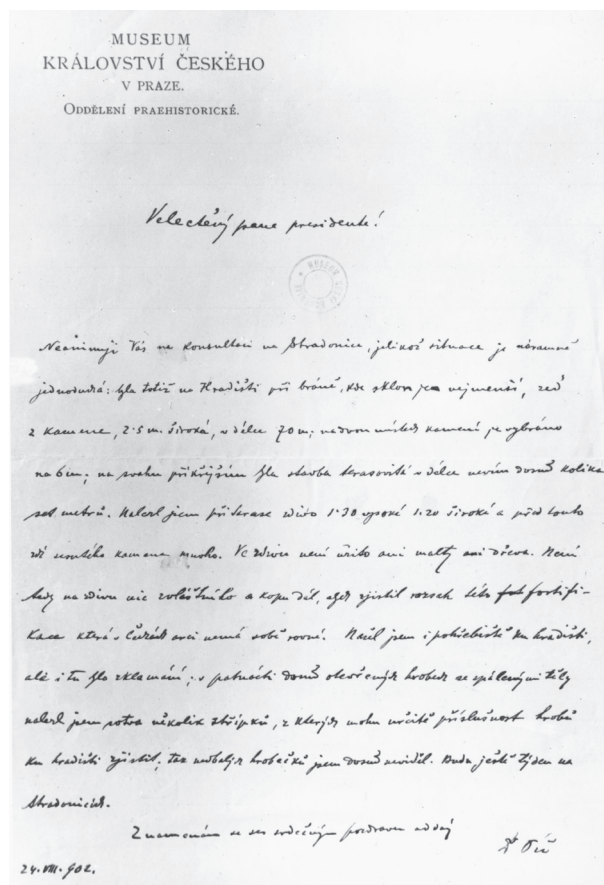 MUSEUM
KRÁLOVSTVÍ ČESKÉHO
V PRAZE.
ODDĚLENÍ PRAEHISTORICKÉ.
Velectěný pane presidente!
Vás na konsultaci na Stradonice, jelikož situace je náramně
jednoduchá: byla totiž na Hradišti při bráně, kde sklon je nejmenší, zeď
z kamene, 2·5 m. široká, v délce 70 m; na dvou místech kamení je vybráno
na 6 m; na svahu příkřejším byla stavba terasovitá v délce nevím dosud kolika
set metrů. Nalezl jsem při terase zdivo 1·30 vysoké 1·20 široké a před touto
zdí kamene mnoho. Ve zdivu není užito ani malty ani dřeva. Není
tedy na zdivu nic zvláštního a kopu dál, abych zjistil rozsah této fortifi-
kace která v Čechách arci nemá sobě rovné. Našel jsem i pohřebiště ku hradišti,
ale i tu bylo zklamání; v patnácti dosud otevřených hrobech se spálenými těly
nalezl jsem sotva několik střípků, z kterých mohu určitě příslušnost hrobů
ku hradišti zjistit; tak hrobečků jsem dosud neviděl. Budu ještě týden na
Stradonicích.
Znamenám se se srdečným pozdravem oddaný
Dr Píč
24. VIII. 902.